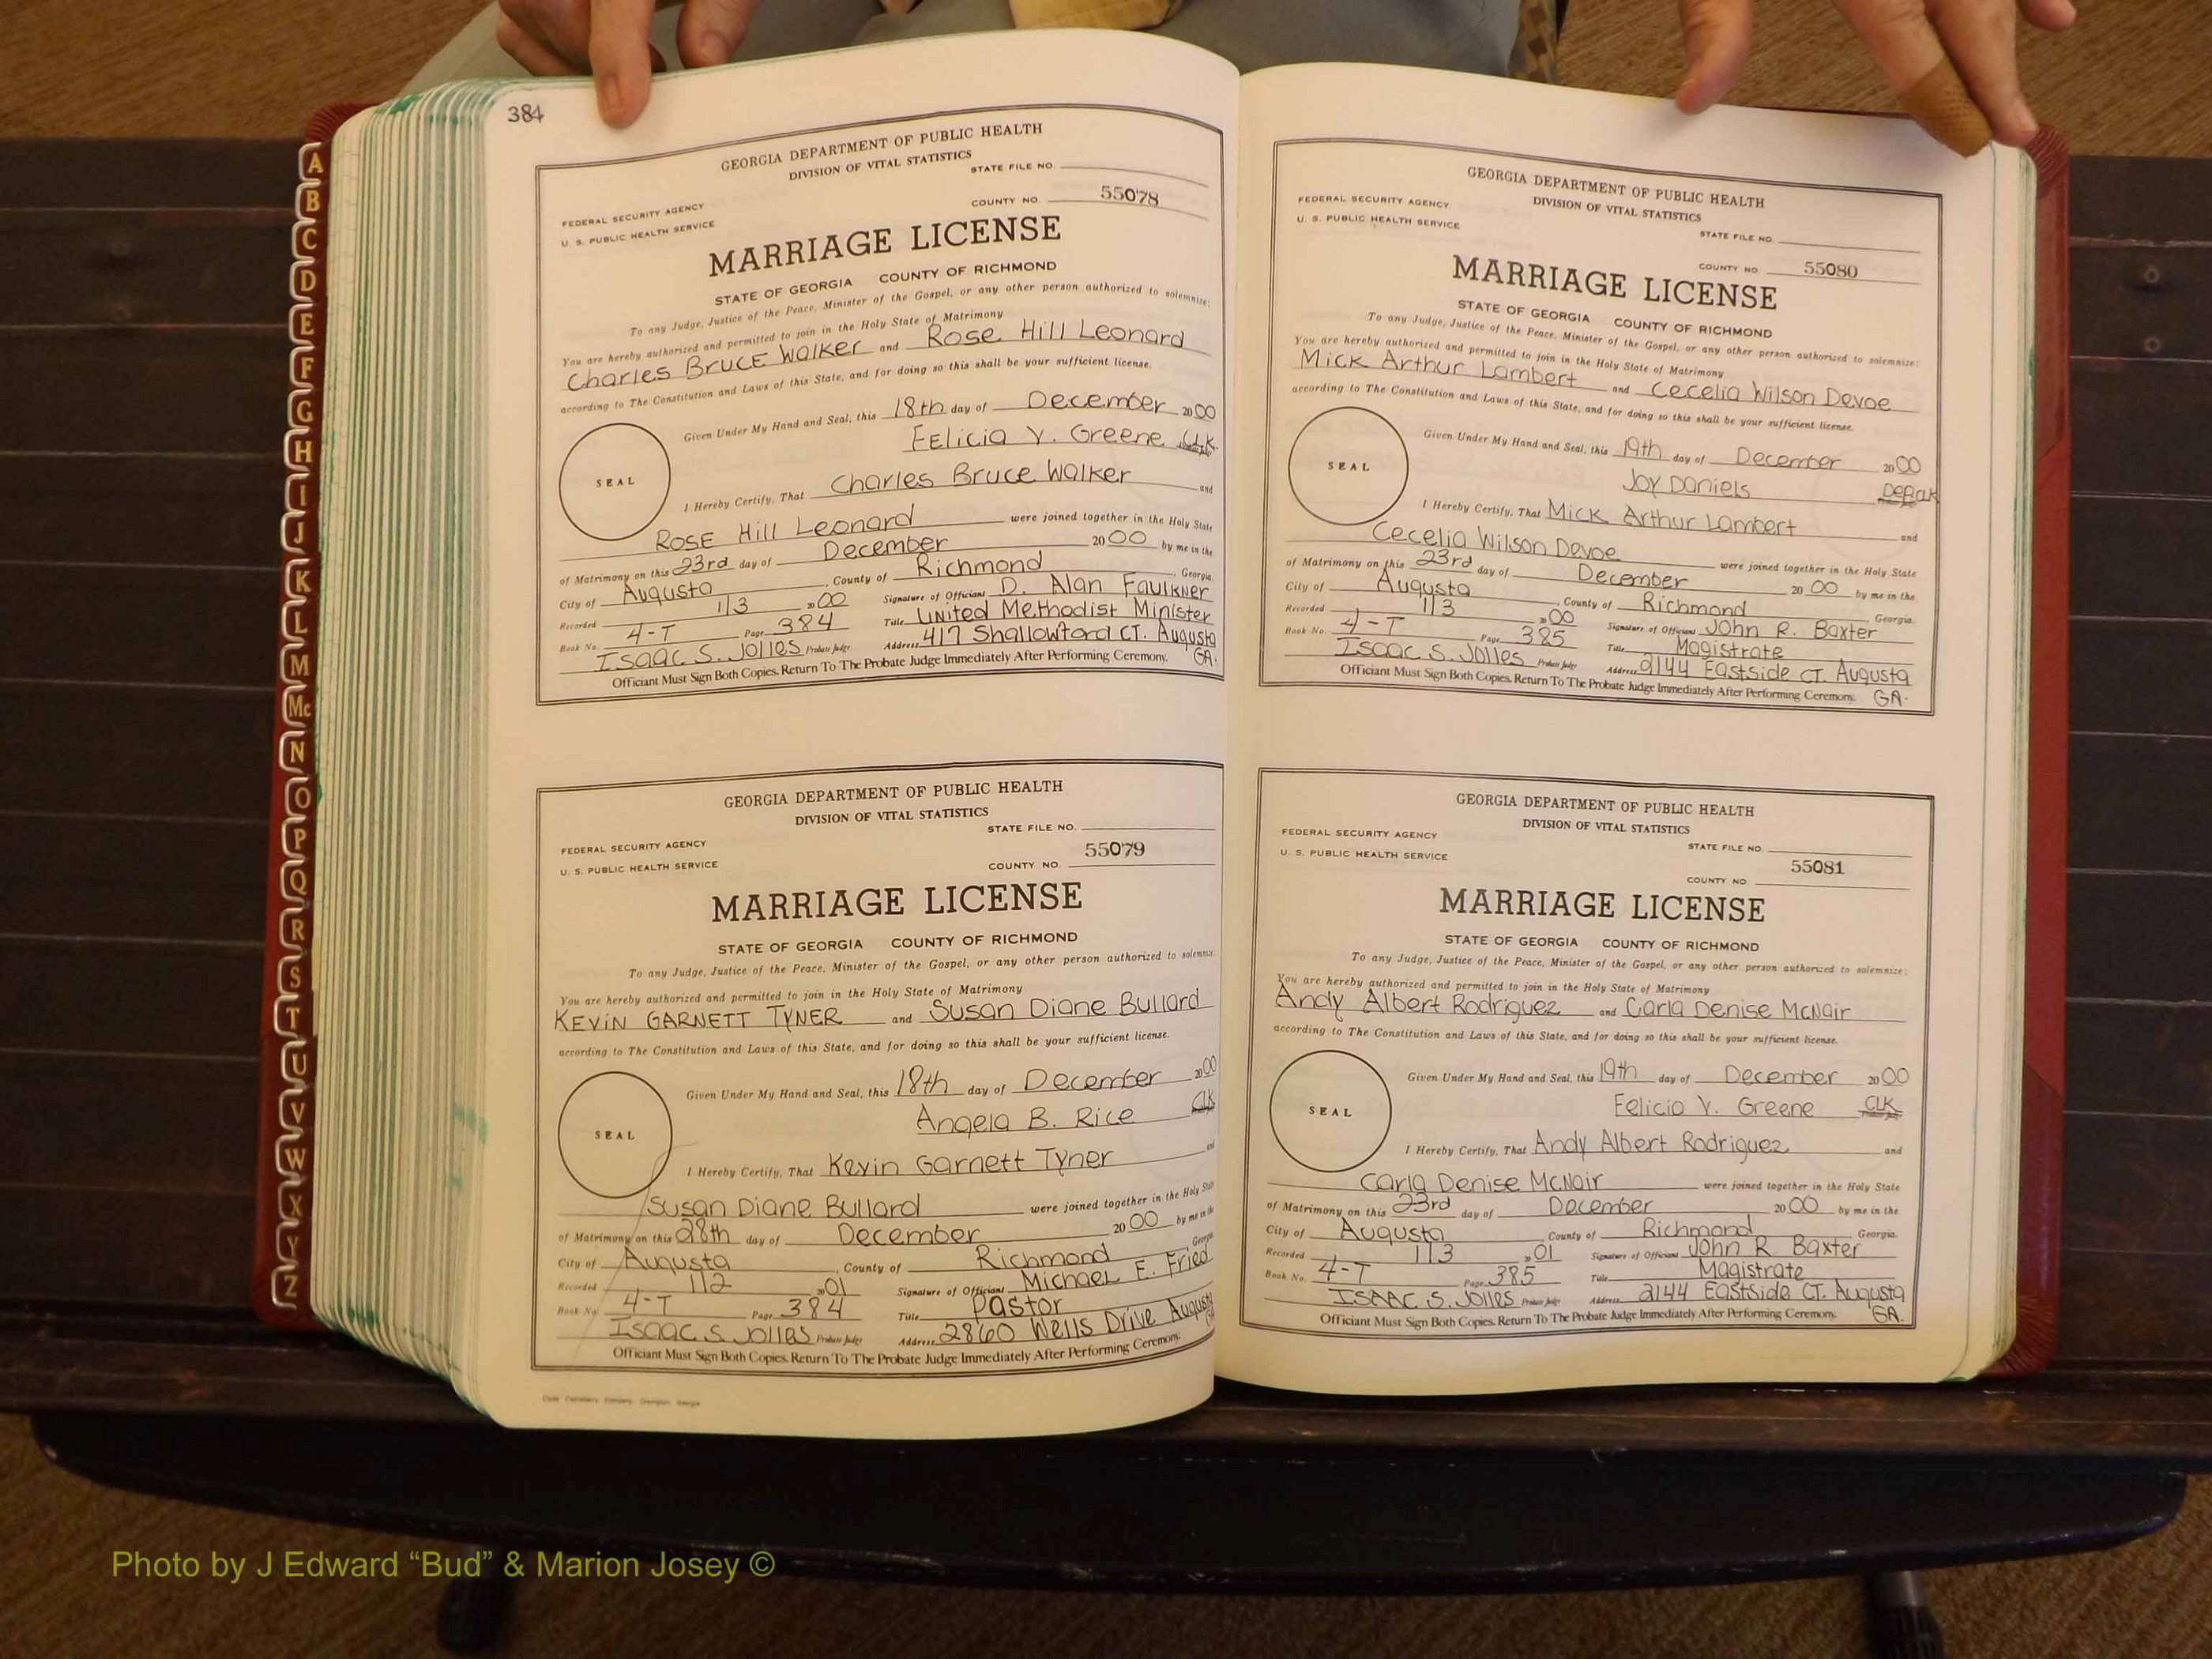 384
A
B
C
D
E
F
G
H
I
J
K
L
M
Mc
N
O
P
Q
R
S
T
U
V
W
X
Y
Z
GEORGIA DEPARTMENT OF PUBLIC HEALTH
DIVISION OF VITAL STATISTICS
STATE FILE NO.
FEDERAL SECURITY AGENCY
COUNTY NO. 55078
U. S. PUBLIC HEALTH SERVICE
MARRIAGE LICENSE
STATE OF GEORGIA COUNTY OF RICHMOND
To any Judge, Justice of the Peace, Minister of the Gospel, or any other person authorized to solemnize:
You are hereby authorized and permitted to join in the Holy State of Matrimony
Charles Bruce Walker and Rose Hill Leonard
according to The Constitution and Laws of this State, and for doing so this shall be your sufficient license.
Given Under My Hand and Seal, this 18th day of December 2000
Felicia V. Greene CLK.
SEAL
I Hereby Certify, That Charles Bruce Walker and
Rose Hill Leonard were joined together in the Holy State
of Matrimony on this 23rd day of December 2000 by me in the
City of Augusta, County of Richmond, Georgia.
Recorded 1/3 2000 Signature of Officiant D. Alan Faulkner
Title United Methodist Minister
Book No. 4-T Page 384
Address 417 Shallowford CT. Augusta GA.
Isaac S. Jolles Probate Judge
Officiant Must Sign Both Copies. Return To The Probate Judge Immediately After Performing Ceremony.
GEORGIA DEPARTMENT OF PUBLIC HEALTH
DIVISION OF VITAL STATISTICS
STATE FILE NO.
FEDERAL SECURITY AGENCY
COUNTY NO. 55079
U. S. PUBLIC HEALTH SERVICE
MARRIAGE LICENSE
STATE OF GEORGIA COUNTY OF RICHMOND
To any Judge, Justice of the Peace, Minister of the Gospel, or any other person authorized to solemnize
You are hereby authorized and permitted to join in the Holy State of Matrimony
KEVIN GARNETT TYNER and Susan Diane Bullard
according to The Constitution and Laws of this State, and for doing so this shall be your sufficient license.
Given Under My Hand and Seal, this 18th day of December 2000
Angela B. Rice CLK
SEAL
I Hereby Certify, That Kevin Garnett Tyner and
Susan Diane Bullard were joined together in the Holy State
of Matrimony on this 28th day of December 2000 by me in the
City of Augusta, County of Richmond, Georgia
Recorded 1/2 2001 Signature of Officiant Michael E. Fried
Book No. 4-T Page 384 Title Pastor
Isaac S. Jolles Probate Judge Address 2860 Wells Drive Augusta
Officiant Must Sign Both Copies. Return To The Probate Judge Immediately After Performing Ceremony.
GEORGIA DEPARTMENT OF PUBLIC HEALTH
DIVISION OF VITAL STATISTICS
FEDERAL SECURITY AGENCY
U. S. PUBLIC HEALTH SERVICE
STATE FILE NO.
COUNTY NO. 55080
MARRIAGE LICENSE
STATE OF GEORGIA COUNTY OF RICHMOND
To any Judge, Justice of the Peace, Minister of the Gospel, or any other person authorized to solemnize:
You are hereby authorized and permitted to join in the Holy State of Matrimony
Mick Arthur Lambert and Cecelia Wilson Devoe
according to The Constitution and Laws of this State, and for doing so this shall be your sufficient license.
Given Under My Hand and Seal, this 19th day of December 2000
Joy Daniels DepClk
SEAL
I Hereby Certify, That Mick Arthur Lambert and
Cecelia Wilson Devoe were joined together in the Holy State
of Matrimony on this 23rd day of December 2000 by me in the
City of Augusta, County of Richmond Georgia.
Recorded 1/3 2000 Signature of Officiant John R. Baxter
Book No. 4-T Page 385 Title Magistrate
Isaac S. Jolles Probate Judge Address 2144 Eastside CT. Augusta
Officiant Must Sign Both Copies. Return To The Probate Judge Immediately After Performing Ceremony. GA.
GEORGIA DEPARTMENT OF PUBLIC HEALTH
DIVISION OF VITAL STATISTICS
FEDERAL SECURITY AGENCY
STATE FILE NO.
U. S. PUBLIC HEALTH SERVICE
COUNTY NO 55081
MARRIAGE LICENSE
STATE OF GEORGIA COUNTY OF RICHMOND
To any Judge, Justice of the Peace, Minister of the Gospel, or any other person authorized to solemnize:
You are hereby authorized and permitted to join in the Holy State of Matrimony
Andy Albert Rodriguez and Carla Denise McNair
according to The Constitution and Laws of this State, and for doing so this shall be your sufficient license.
Given Under My Hand and Seal, this 19th day of December 2000
Felicia V. Greene CLK
SEAL
I Hereby Certify, That Andy Albert Rodriguez and
Carla Denise McNair were joined together in the Holy State
of Matrimony on this 23rd day of December 2000 by me in the
City of Augusta, County of Richmond, Georgia.
Recorded 1/3 2001 Signature of Officiant John R Baxter
Book No. 4-T Page 385 Title Magistrate
ISAAC S. Jolles Probate Judge Address 2144 Eastside CT. Augusta
Officiant Must Sign Both Copies. Return To The Probate Judge Immediately After Performing Ceremony. GA.
Photo by J Edward “Bud” & Marion Josey ©